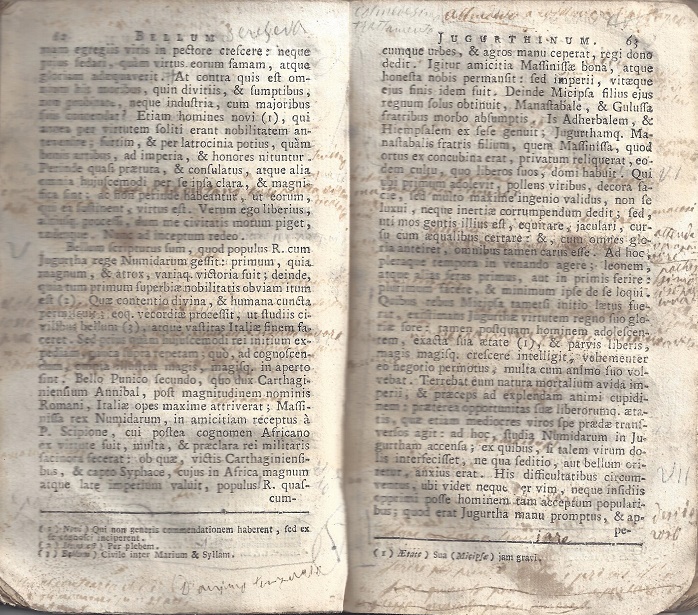 62 BELLUM
mam egregiis viris in pectore crescere: neque
prius sedari, quàm virtus eorum famam, atque
gloriam adæquaverit. At contra quis est om-
nium his moribus, quin divitiis, & sumptibus,
non probitate, neque industria, cum majoribus
suis contendat? Etiam homines novi (1), qui
antea per virtutem soliti erant nobilitatem an-
tevenire; furtim, & per latrocinia potius, quàm
bonis artibus, ad imperia, & honores nituntur.
Perinde quasi prætura, & consulatus, atque alia
omnia hujuscemodi per se ipsa clara, & magni-
fica sint, ac non perinde habeantur, ut eorum,
qui ea sustinent, virtus est. Verum ego liberius,
altiusque processi, dum me civitatis morum piget,
tædetque. Nunc ad inceptum redeo.
Bellum scripturus sum, quod populus R. cum
Jugurtha rege Numidarum gessit: primum, quia
magnum, & atrox, variaq. victoria fuit; deinde,
quia tum primum superbiæ nobilitatis obviam itum
est (2). Quæ contentio divina, & humana cuncta
permiscuit; eoq. vecordiæ processit, ut studiis ci-
vilibus bellum (3), atque vastitas Italiæ finem fa-
ceret. Sed priusquam hujuscemodi rei initium ex-
pediam, pauca supra repetam; quò, ad cognoscen-
dum, omnia illustria magis, magisq. in aperto
sint. Bello Punico secundo, quo dux Carthagi-
niensium Annibal, post magnitudinem nominis
Romani, Italiæ opes maxime attriverat; Massi-
nissa rex Numidarum, in amicitiam receptus à
P. Scipione, cui postea cognomen Africano
ex virtute fuit, multa, & præclara rei militaris
facinora fecerat: ob quæ, victis Carthaginiensi-
bus, & capto Syphace, cujus in Africa magnum
atque late imperium valuit, populus R. quas-
cum-
(1) Novi) Qui non generis commendationem haberent, sed ex
se nobiles inciperent.
(2) Itum est) Per plebem.
(3) Bellum) Civile inter Marium & Syllam.
JUGURTHINUM. 63
cumque urbes, & agros manu ceperat, regi dono
dedit. Igitur amicitia Massinissæ bona, atque
honesta nobis permansit: sed imperii, vitæque
ejus finis idem fuit. Deinde Micipsa filius ejus
regnum solus obtinuit, Manastabale, & Gulussa
fratribus morbo absumptis. Is Adherbalem, &
Hiempsalem ex sese genuit; Jugurthamq. Ma-
nastabalis fratris filium, quem Massinissa, quod
ortus ex concubina erat, privatum reliquerat, eo-
dem cultu, quo liberos suos, domi habuit. Qui
ubi primum adolevit, pollens viribus, decora fa-
cie, sed multo maxime ingenio validus, non se
luxui, neque inertiæ corrumpendum dedit; sed,
uti mos gentis illius est, equitare, jaculari, cur-
su cum æqualibus certare: &, cum omnes glo-
ria anteiret, omnibus tamen carus esse. Ad hoc
pleraque tempora in venando agere; leonem,
atque alias feras primus, aut in primis ferire:
plurimum facere, & minimum ipse de se loqui.
Quibus rebus Micipsa, tametsi initio lætus fue-
rat, existimans Jugurthæ virtutem regno suo glo-
riæ fore: tamen postquam hominem adolescen-
tem, exacta sua ætate (1), & parvis liberis,
magis magisq. crescere intelligit, vehementer
eo negotio permotus, multa cum animo suo vol-
vebat. Terrebat eum natura mortalium avida im-
perii, & præceps ad explendam animi cupidi-
nem; præterea opportunitas suæ liberorumq. æta-
tis, quæ etiam mediocres viros spe prædæ trans-
versos agit: ad hoc, studia Numidarum in Ju-
gurtham accensa; ex quibus, si talem virum do-
lis interfecisset, ne qua seditio, aut bellum ori-
retur, anxius erat. His difficultatibus circum-
ventus, ubi videt neque per vim, neque insidiis
opprimi posse hominem tam acceptum populari-
bus; quod erat Jugurtha manu promptus, & ap-
pe-
(1) Ætate) Sua (Micipsæ) jam gravi.
VI
VII